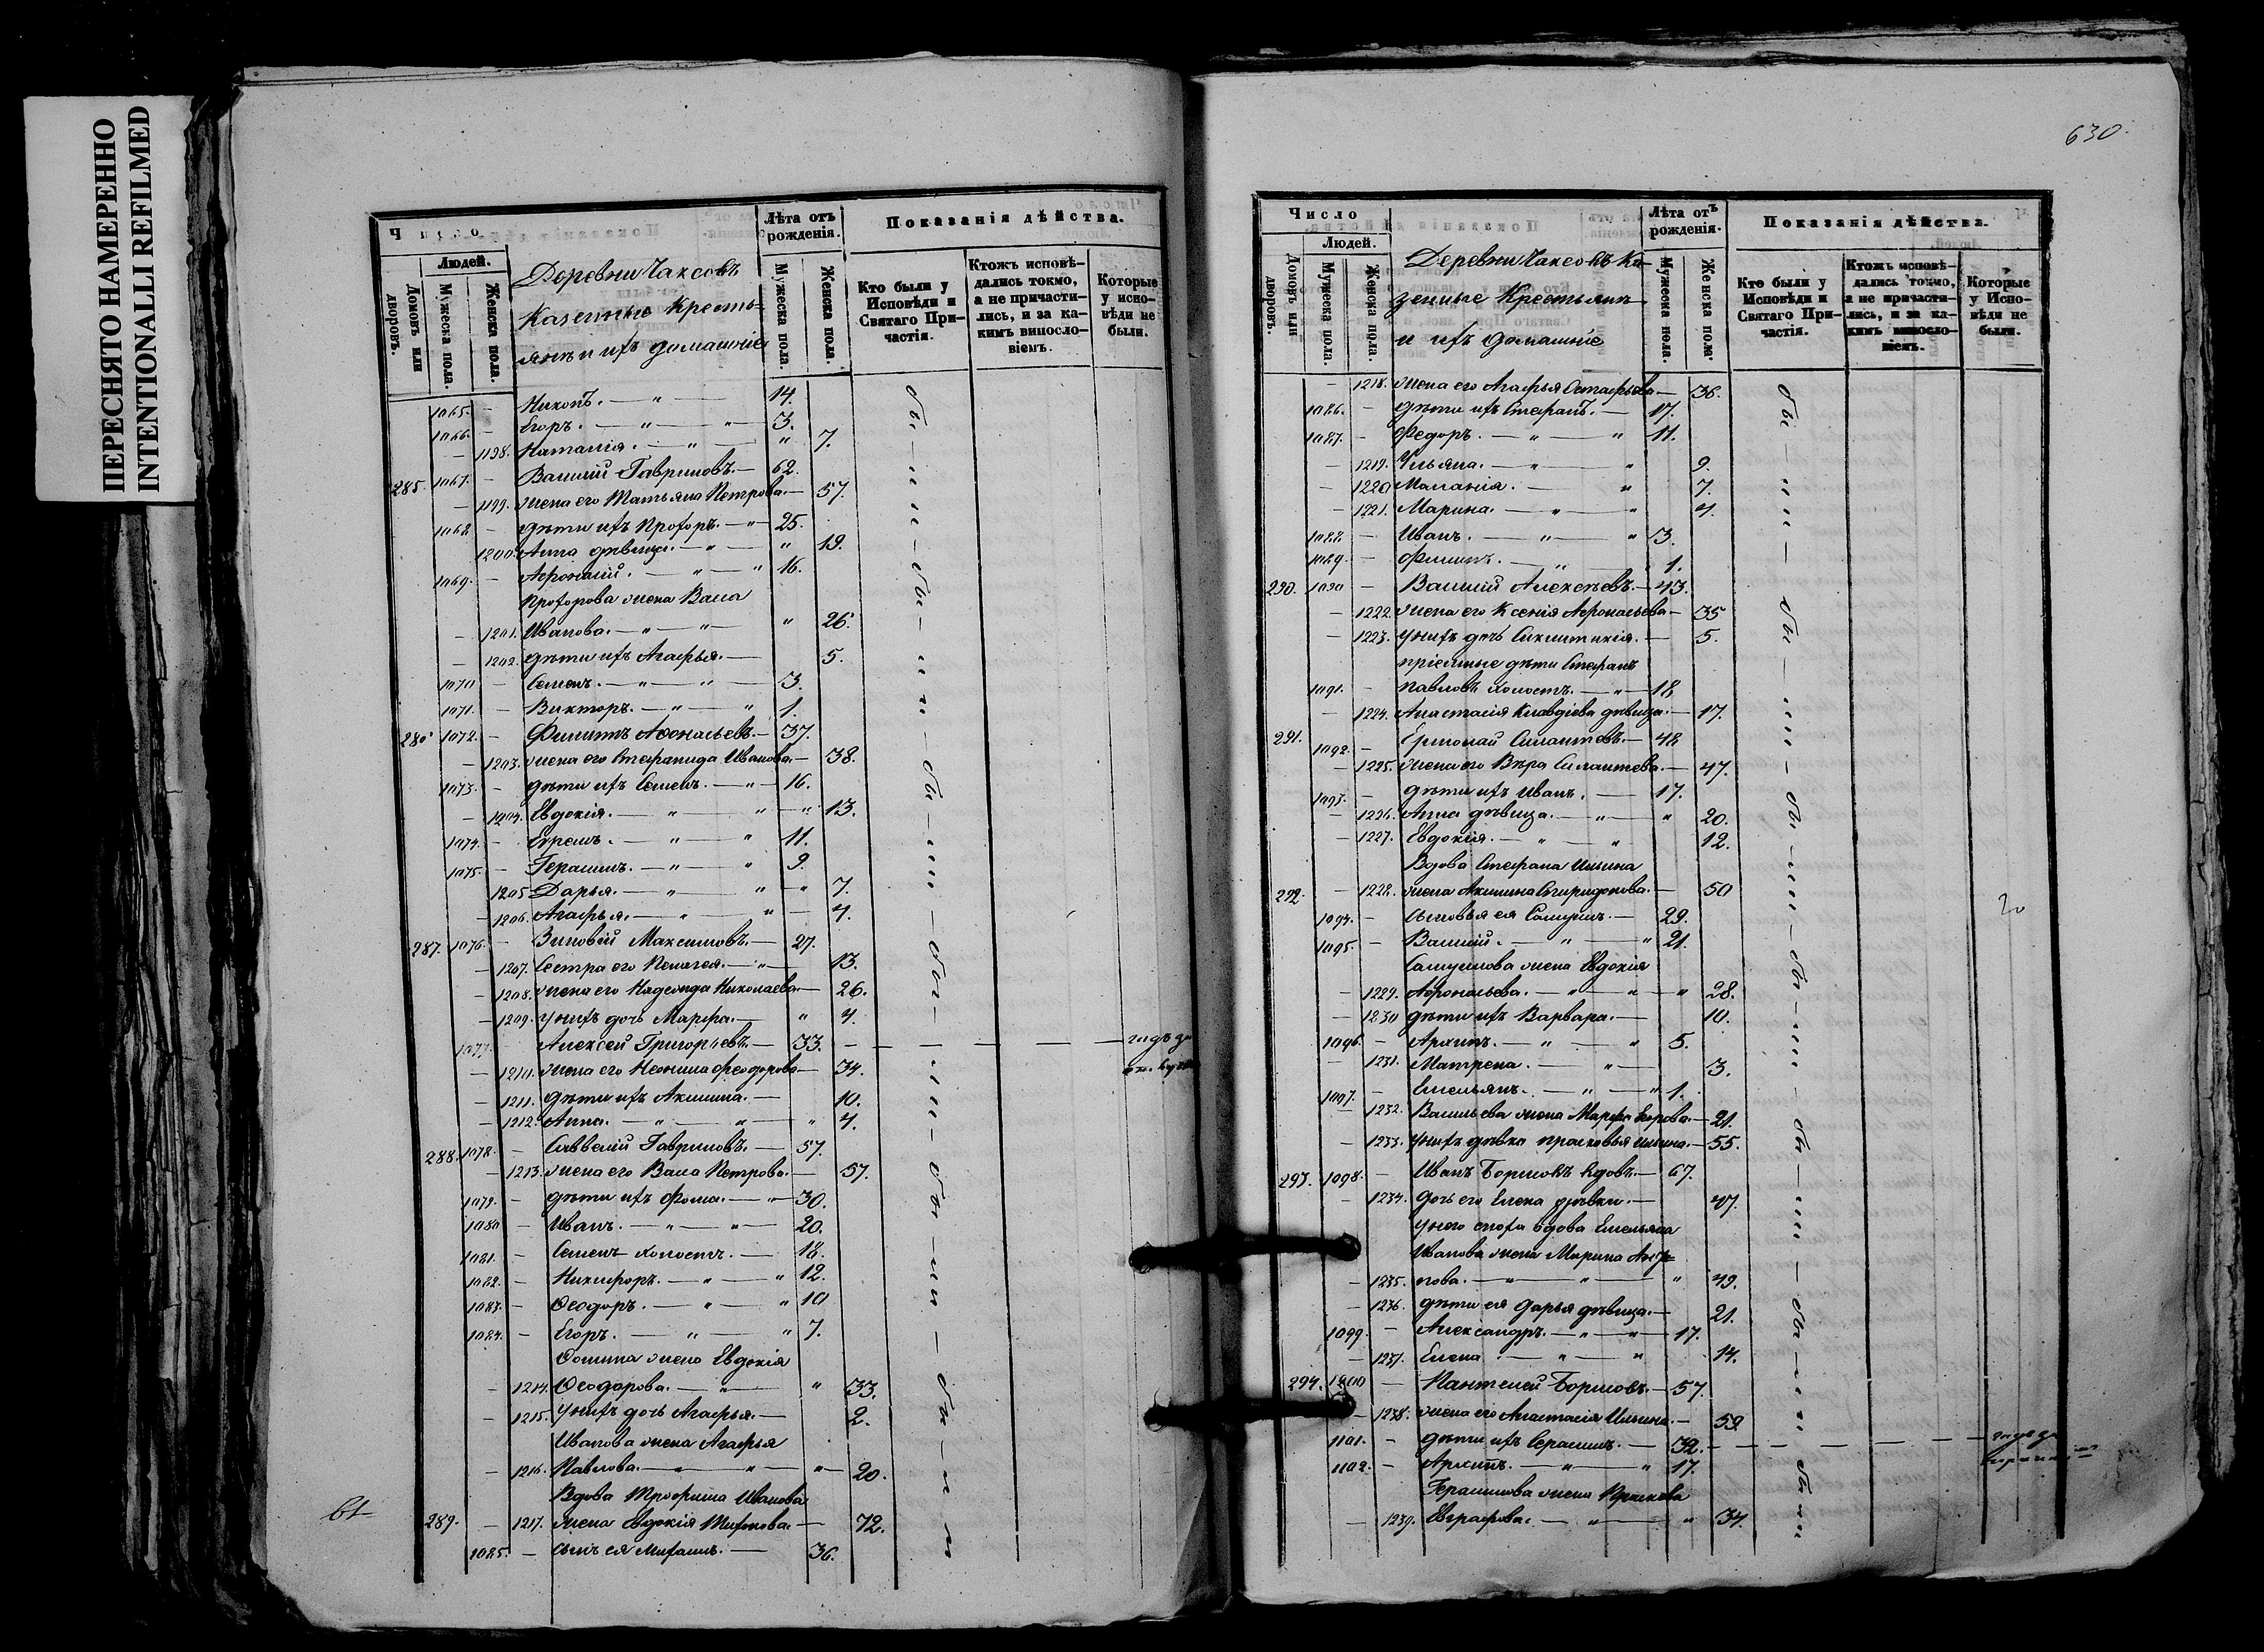 ПЕРЕСНЯТО НАМЕРЕННО
INTENTIONALLI REFILMED
Число
Людей.
Домовъ или дворовъ.
Мужеска пола.
Женска пола.
Деревни Чаксовъ
Казенные кресть-
янъ и ихъ домашніе
Лѣта отъ рожденія.
Мужеска пола.
Женска пола.
Показанія дѣйства.
Кто были у Исповѣди и Святаго Причастія.
Ктожъ исповѣ-
дались токмо,
а не причасти-
лись, и за ка-
кимъ винословіемъ.
Которые у исповѣди не были.
1065. — Никонъ. — " — 14.
1066. — Егоръ. — " — " — 3.
— 1198. Наталія. — " — " 7.
285. 1067. — Василій Гавриловъ. — 62.
— 1199. жена его Татьяна Петрова. — 57.
1068 — дѣти ихъ Прохоръ. — " — 25.
1200. Анна дѣвица. — " — " 19.
1069. — Афонасій. — " — " 16.
Прохорова жена Васса
— 1201. Иванова. — " — " — " 26.
— 1202. дѣти ихъ Агафья. — 5.
1070 — Семенъ. — " — " — 3.
1071. — Викторъ. — " — " 1.
1072. — Филиппъ Афонасьевъ. — 37.
— 1203. жена его Степанида Иванова. — 38.
1073. — дѣти ихъ Семенъ. — " — 16.
— 1204. Евдокія. — " — " — " 13.
1074. — Ефремъ. — " — " 11.
1075. — Герасимъ. — " — " 9.
1205 Дарья. — " — " — " 7.
— 1206. Агафья. — " — " — 4.
287. 1076. — Зиновій Максимовъ. — 27.
— 1207. Сестра его Пелагея. — " — 13.
— 1208. жена его Надежда Николаева. — 26.
— 1209. у нихъ дочь Марфа. — " 4.
1077. Алексей Григорьевъ. — 33. — — — —
— 1210. жена его Неонила Феодорова — 34.
— 1211. дѣти ихъ Акилина. — 10.
— 1212. Анна. — " — " — " 4.
288. 1078. — Савелій Гавриловъ. — 57.
— 1213. жена его Васса Петрова. — 57.
1079. — дѣти ихъ Фома. — " — 30.
1080 — Иванъ. — " — " — 20.
1081. — Семенъ холостъ. — 18.
1082. — Никифоръ. — " — " 12.
1083. — Феодоръ. — " — " 10
1084. — Егоръ. — " — " 7.
Фомина жена Евдокія
— 1214. Феодорова. — " — " 33.
— 1215. У нихъ дочь Агафья. — 2.
Иванова жена Агафья
— 1216. Павлова. — " — " — " — 20.
Вдова Трофима Иванова
289. — 1217. жена Евдокія Тихонова. — 72.
1085. — сынъ ея Михаилъ. — 36.
630.
Число
Людей.
Домовъ или дворовъ.
Мужеска пола.
Женска пола.
Деревни Чаксовъ Ка-
зенные Крестьянъ
и ихъ домашніе
Лѣта отъ рожденія.
Мужеска пола.
Женска пола.
Показанія дѣйства.
Кто были у Исповѣди и Святаго Причастія.
Ктожъ исповѣ-
дались токмо,
а не причасти-
лись, и за ка-
кимъ винословіемъ.
Которые у Исповѣди не были.
— 1218. жена его Агафья Остафьева — 36.
1086. — дѣти ихъ Стефанъ. — 17.
1087. — Федоръ. — " — " 11.
— 1219. Ульяна. — " — " 9.
— 1220 Маланія. — " 7.
— 1221. Марина. — " — " 4.
1088 — Иванъ. — " — " 3.
1089. — Филиппъ. — " 1.
290. 1090 — Василій Алексѣевъ. — 43.
— 1222. жена его Ксенія Афонасьева — 35
— 1223. у нихъ дочь Синклитикія. — 5.
пріемные дѣти Стефанъ
1091. — Павловъ холостъ. — " — 18
— 1224. Анастасія Клавдіева дѣвица. — 17.
291. 1092. — Ермолай Силантьевъ. — 48
— 1225. жена его Вѣра Силантьева. — 47.
1093. — дѣти ихъ Иванъ. — 17.
— 1226. Анна дѣвица. — " — " 20.
— 1227. Евдокія. — " — " 12.
Вдова Стефана Ильина
292. — 1228. жена Акилина Спиридонова. — 50
1094. — сыновья ея Самуилъ. — 29.
1095. — Василій. — " — " 21.
Самуилова жена Евдокія
— 1229. Афонасьева. — " — " — " 28.
— 1230 дѣти ихъ Варвара. — 10.
1096. — Архипъ. — " — " 5.
— 1231. Матрена. — " — 3.
1097. — Емельянъ. — " — " 1.
— 1232. Васильева жена Марфа Егорова. — 21.
— 1233. у нихъ дѣвка Прасковья Ильина. — 55.
293. 1098. — Иванъ Борисовъ вдовъ. — 67.
— 1234. дочь его Елена дѣвка. — 47.
У него сноха вдова Емельяна
Иванова жена Марина
— 1235. нова. — " — " — " 49.
— 1236. дѣти ея Дарья дѣвица. — 21.
1099. — Александръ. — " — " — 17.
— 1237. Елена. — " — " 14.
294. 1100 — Пантелей Борисовъ. — 57.
— 1238. жена его Анастасія Ильина. — 59.
1101. — дѣти ихъ Герасимъ. — 32. — — — —
1102. — Архипъ. — " — " 17.
Герасимова жена
— 1239. Евграфова. — " — " 34.